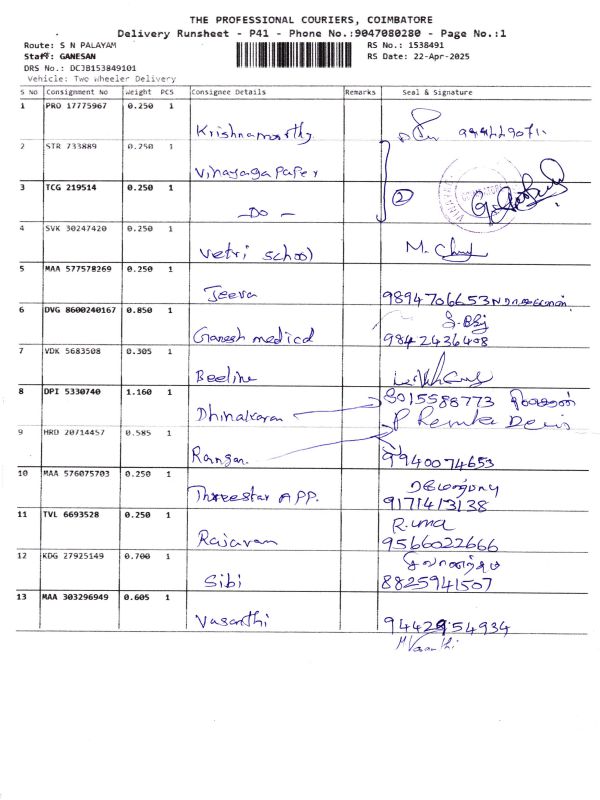 THE PROFESSIONAL COURIERS, COIMBATORE
Delivery Runsheet - P41 - Phone No.:9047080280 - Page No.:1
Route: S N PALAYAM RS No.: 1538491
Staff: GANESAN RS Date: 22-Apr-2025
DRS No.: DCJB153849101
Vehicle: Two Wheeler Delivery
S No Consignment No Weight PCS Consignee Details Remarks Seal & Signature
1 PRO 17775967 0.250 1
Krishnamoorthy
2 STR 733889 0.250 1
Vinayaga Paper
3 TCG 219514 0.250 1 2
- Do -
4 SVK 30247420 0.250 1
Vetri school
5 MAA 577578269 0.250 1
Jeeva 9894706653
6 DVG 8600240167 0.850 1
Ganesh medical 9842436408
7 VDK 5683508 0.305 1
Beeline
8 DPI 5330740 1.160 1 8015588773
Dhinakaran
9 HRD 20714457 0.585 1
Rangan 9940074653
10 MAA 576075703 0.250 1
Threestar APP. 9171413138
11 TVL 6693528 0.250 1 R.uma
Rajaram 9566022666
12 KDG 27925149 0.700 1
Sibi 8825941507
13 MAA 303296949 0.605 1
Vasanthi 9442954934